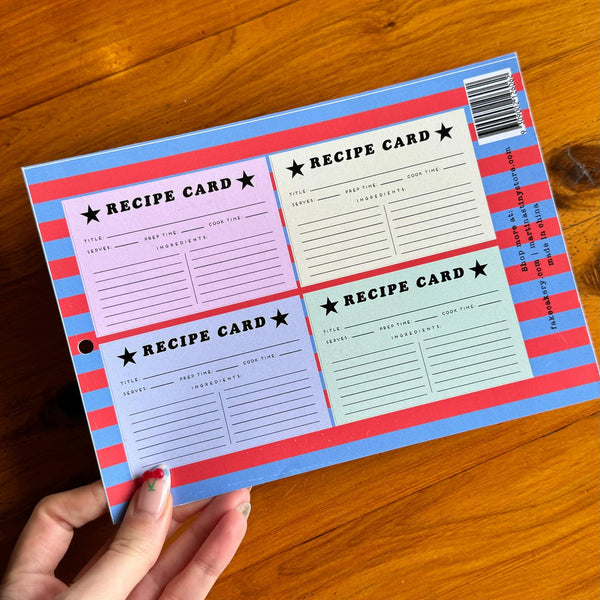 ★ RECIPE CARD ★
TITLE:
SERVES: PREP TIME: COOK TIME:
INGREDIENTS:
★ RECIPE CARD ★
TITLE:
SERVES: PREP TIME: COOK TIME:
INGREDIENTS:
★ RECIPE CARD ★
TITLE:
SERVES: PREP TIME: COOK TIME:
INGREDIENTS:
★ RECIPE CARD ★
TITLE:
SERVES: PREP TIME: COOK TIME:
INGREDIENTS:
Shop more at:
| martinastinystore.com
made in china